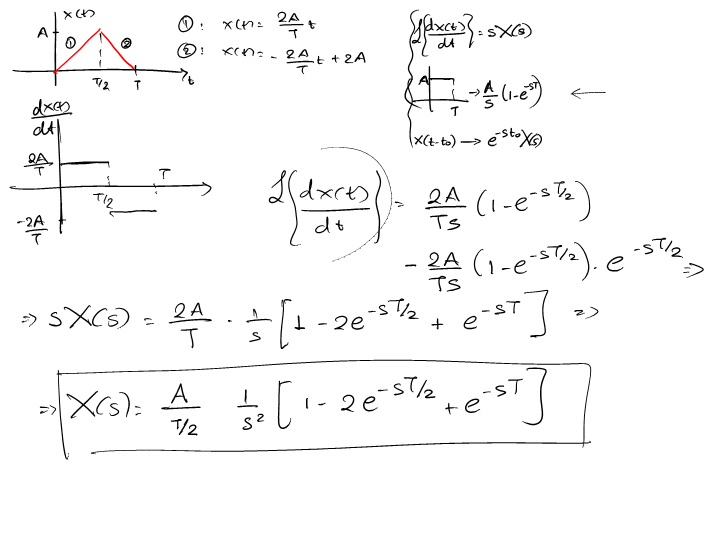 x(t)
A
① ②
T/2 T t
①: x(t) = 2A/T t
②: x(t) = - 2A/T t + 2A
ℒ{dx(t)/dt} = sX(s)
A T → A/s (1-e^-sT) ←
x(t-to) → e^-sto X(s)
dx(t)/dt
2A/T
T/2 T
-2A/T
ℒ{dx(t)/dt} = 2A/Ts (1-e^-sT/2)
- 2A/Ts (1-e^-sT/2) · e^-sT/2 ⇒
⇒ sX(s) = 2A/T · 1/s [1 - 2e^-sT/2 + e^-sT] ⇒
⇒ X(s) = A/T/2 1/s² [1 - 2e^-sT/2 + e^-sT]